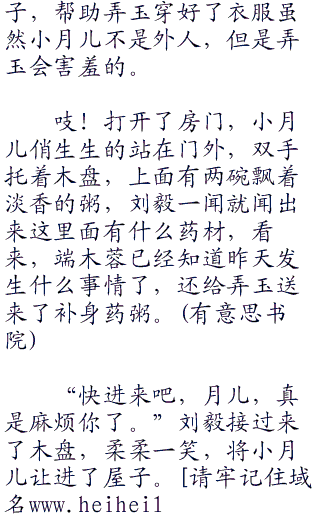 子，帮助弄玉穿好了衣服虽
然小月儿不是外人，但是弄
玉会害羞的。
吱！打开了房门，小月
儿俏生生的站在门外，双手
托着木盘，上面有两碗飘着
淡香的粥，刘毅一闻就闻出
来这里面有什么药材，看
来，端木蓉已经知道昨天发
生什么事情了，还给弄玉送
来了补身药粥。(有意思书
院)
“快进来吧，月儿，真
是麻烦你了。”刘毅接过来
了木盘，柔柔一笑，将小月
儿让进了屋子。[请牢记住域
名www.heihei1